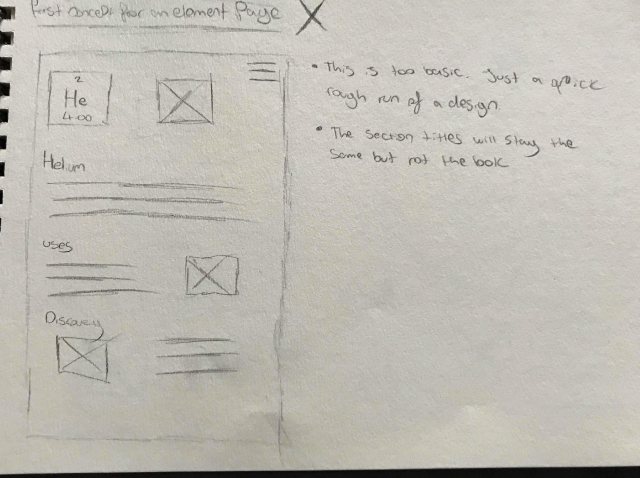 first concept for an element Page
2
He
4.00
Helium
uses
Discovery
• This is too basic. Just a quick
rough run of a design
• The section titles will stay the
same but not the look